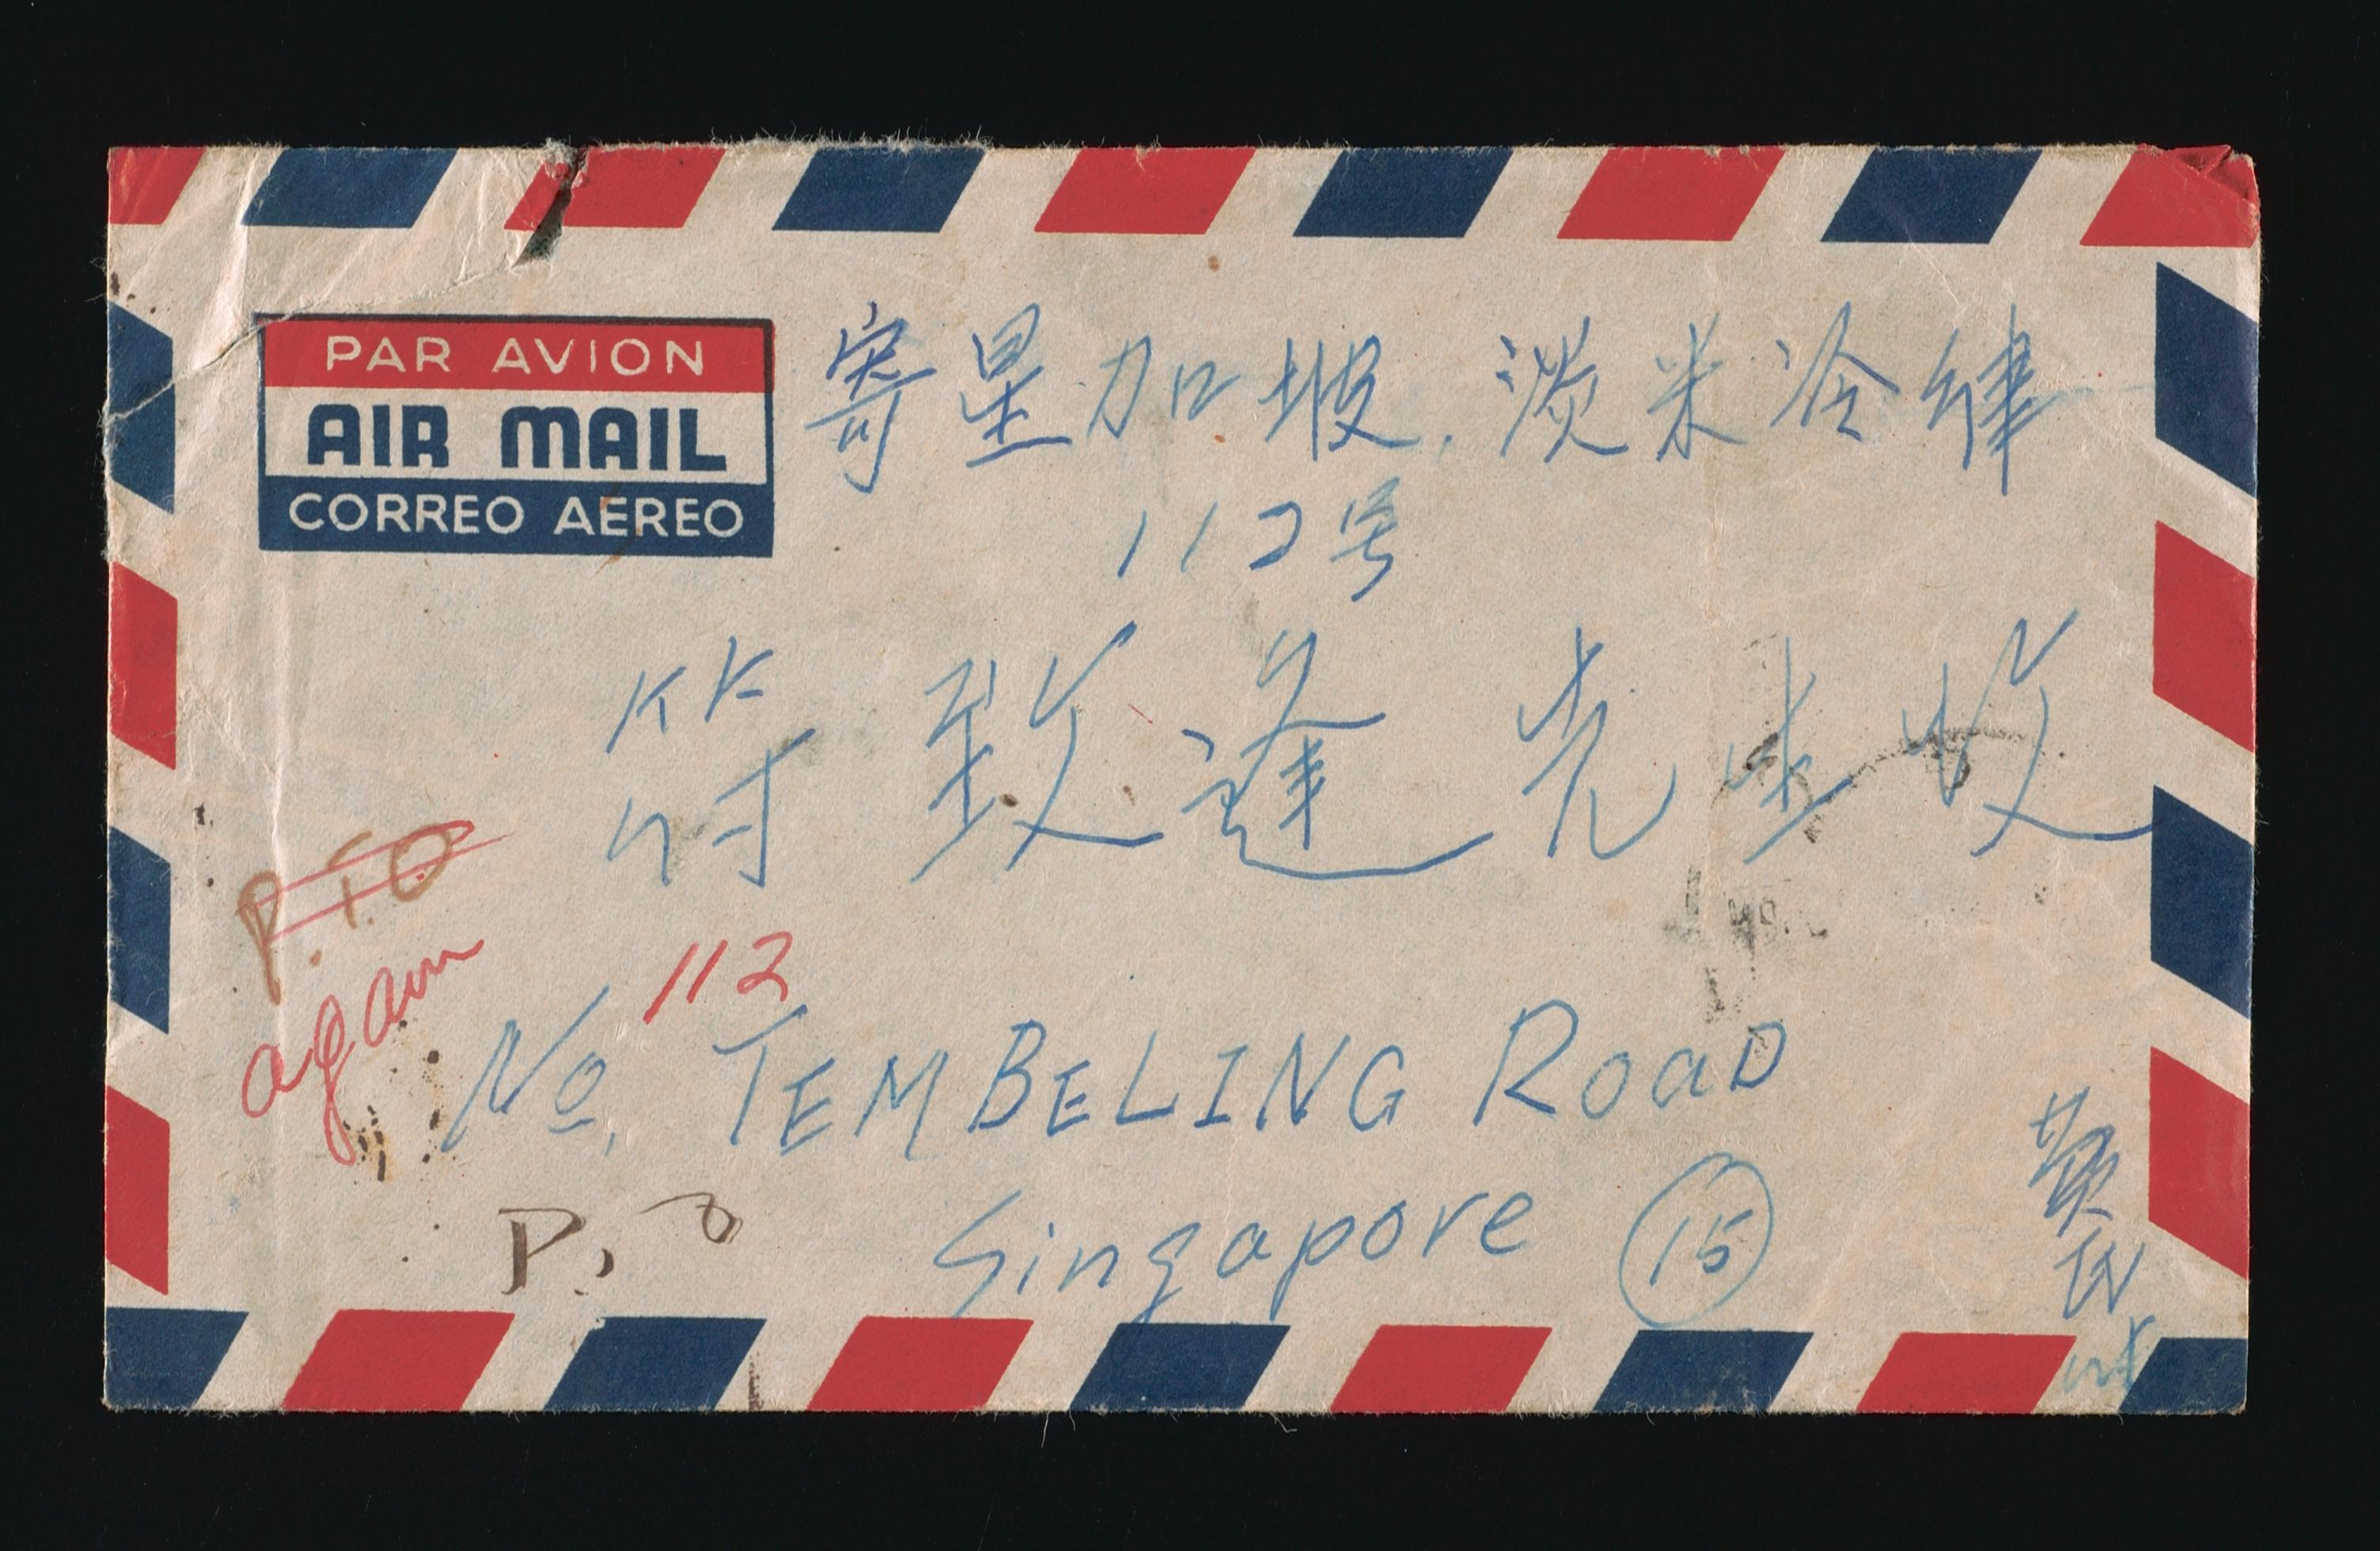 PAR AVION
AIR MAIL
CORREO AEREO
寄星加坡.淡米冷律
112号
符致逢先生收
P.T.O
again
112
No. TEMBELING ROAD
Singapore 15
P.
黄